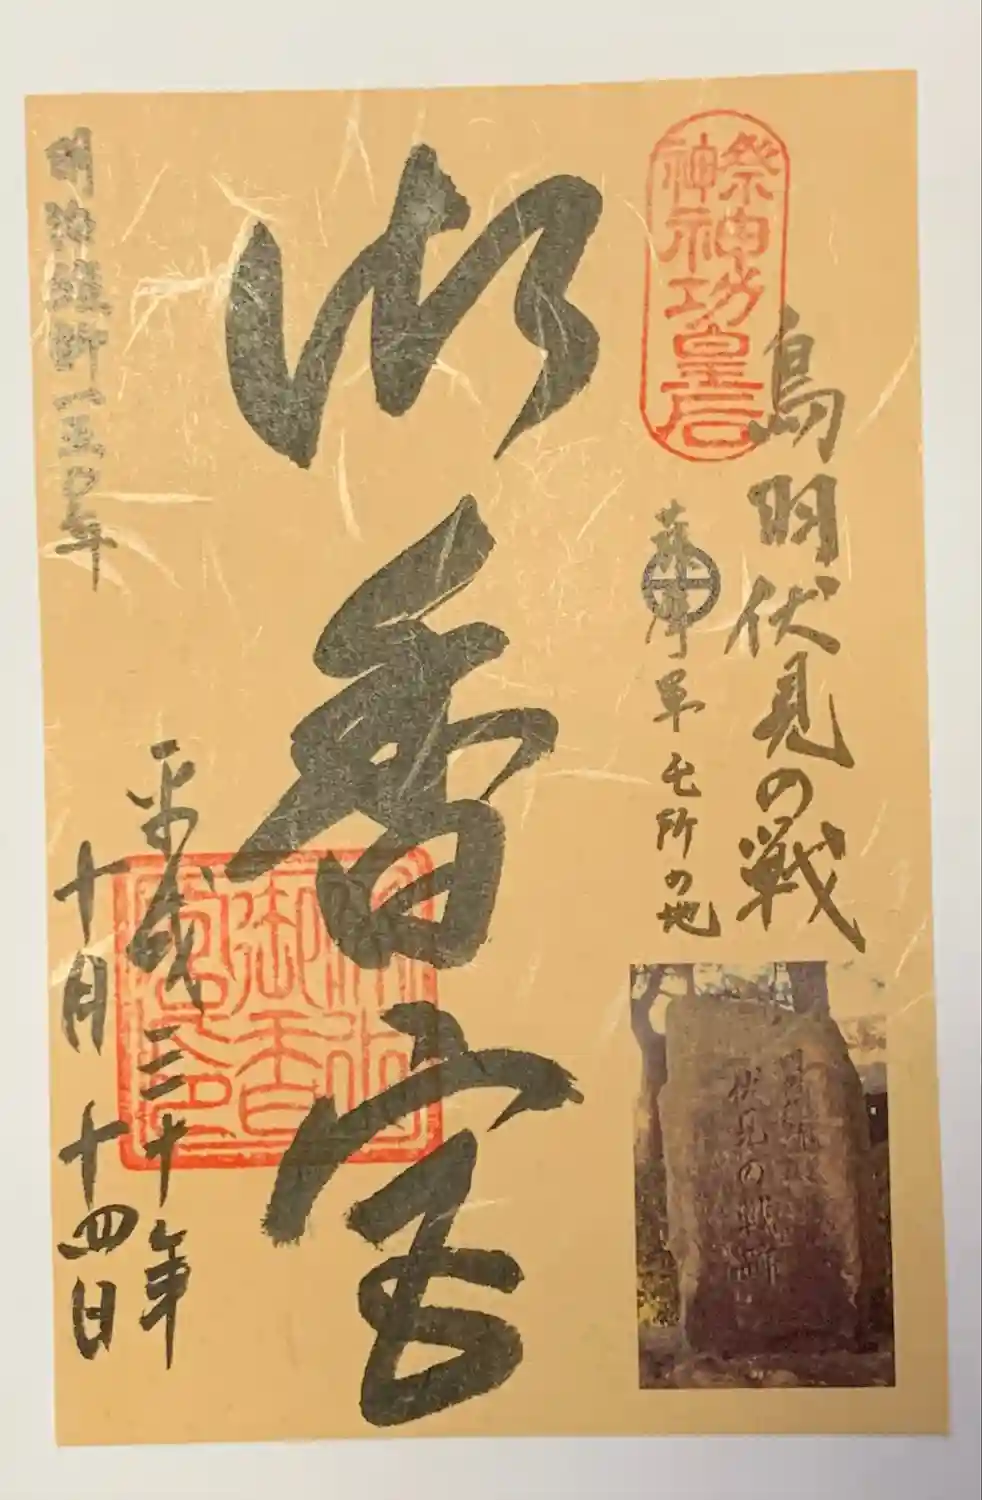 祭神
神功皇后
鳥羽伏見の戦
薩摩軍屯所の地
伏見の戦跡
御香宮
御香宮
平成三十年
十月十四日
明治維新一五〇年